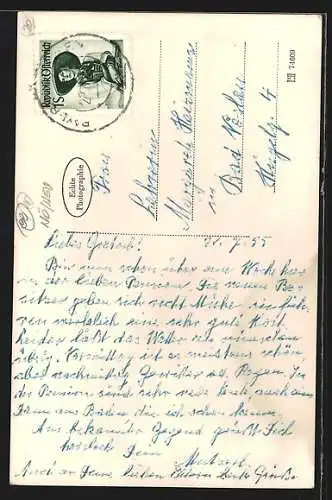 Republik Österreich
1S
PH 74609
Echte
Photographie
Frau
Lehrerin
Margareth
in
Baden
4
21. 7. 55
Liebes
Bin nun schon über eine Woche hier
in der lieben Pension. Die neuen Be-
sitzer geben sich recht Mühe, sie füh-
ren wirklich eine sehr gute Küche.
Leider läßt das Wetter viel zu wünschen
übrig. Vormittag ist es meistens schön,
aber nachmittag Gewitter od. Regen. In
der Pension sind sehr viele Leute, auch eine
Dame aus Baden die ich schon kenne.
Aus bekannter Gegend grüßt Dich
herzlich Deine
Auch an Deine lieben Eltern liebe Grüße